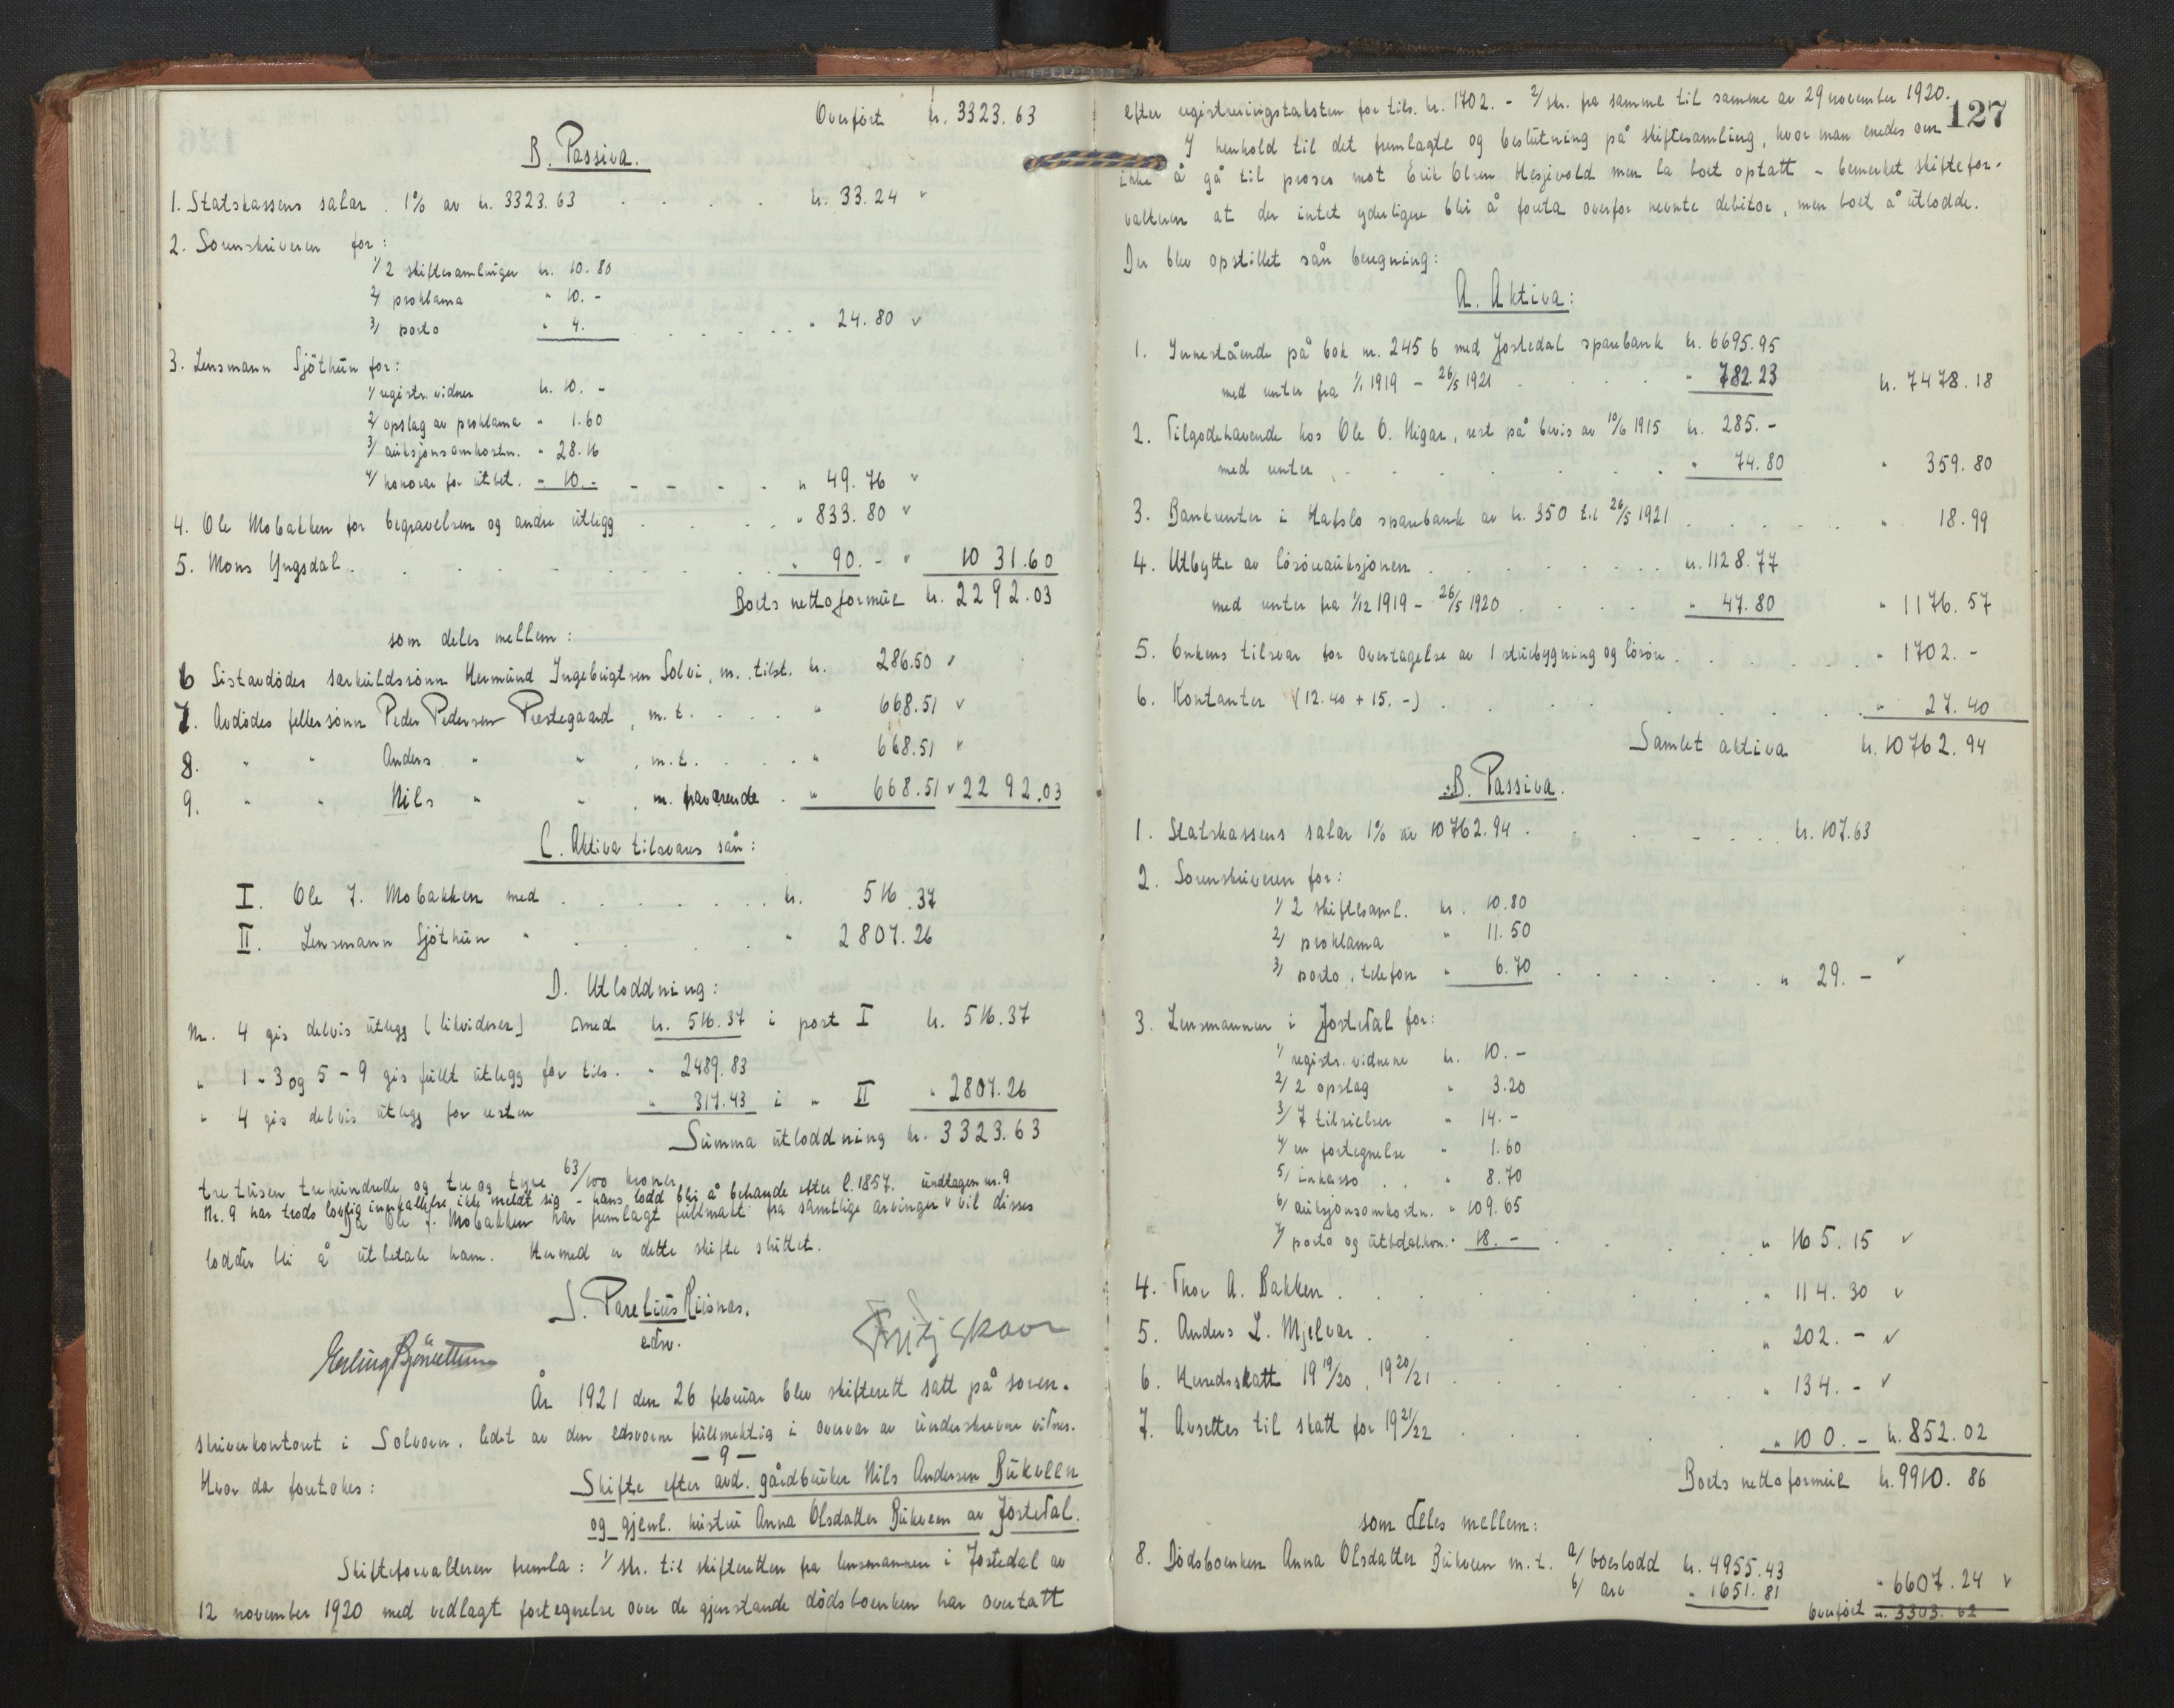 Overført kr. 3323.63
B. Passiva.
1. Statskassens salær. 1% av kr. 3323.63 . . . . kr. 33.24 v
2. Sorenskriveren for:
1/ 2 skiftesamlinger kr. 10.80
2/ proklama " 10.-
3/ porto " 4. . . . . . . " 24.80 v
3. Lensmann Sjøthun for:
1/ registr. vidner kr. 10.-
2/ opslag av proklama " 1.60
3/ auksjonsomkostn. " 28.16
4/ honorar for utbet. " 10.- - - - - " 49.76 v
4. Ole Mobakken for begravelsen og andre utlegg . . . . " 833.80 v
5. Mons Yngsdal . . . . . . . . . " 90.- v 1031.60
Boets nettoformue kr. 2292.03
som deles mellem:
6 Sistavdødes særkuldssønn Hermund Ingebrigtsen Solvi, m. tilst. kr. 286.50 v
7. Avdødes fellessønn Peder Pedersen Prestegaard, m. t. . . . . " 668.51 v
8. " " Anders " " , m. t. . . . . " 668.51 v
9. " " Nils " " , m. fraværende . " 668.51 v 2292.03
C. Aktiva tilsvares sån:
I. Ole J. Mobakken med . . . . . . . kr. 516.37
II. Lensmann Sjøthun " . . . . . . " 2807.26
D. Utloddning:
Nr. 4 gis delvis utlegg (likvideres) med kr. 516.37 i post I kr. 516.37
" 1-3 og 5-9 gis fullt utlegg for tils. " 2489.83
" 4 gis delvis utlegg for resten " 317.43 i " II " 2807.26
Summa utloddning kr. 3323.63
tre tusen trehundrede og tre og tyve 63/100 kroner.
Nr. 9 har trods lovlig innkallelse ikke meldt sig - hans lodd blir å behandle efter l. 1857. undtagen nr. 9
Da Ole J. Mobakken har fremlagt fullmakt fra samtlige arvinger v vil disses
lodder bli å utbetale ham. Hermed er dette skifte sluttet.
S. Parelius Riisnæs.
edsv.
Erling Bjørnetun Fritz Skaar
År 1921 den 26 februar blev skifterett satt på soren-
skriverkontoret i Solvorn, ledet av den edsvorne fullmektig i overvær av underskrevne vidner.
- 9 -
Hvor da foretokes: Skifte efter avd. gårdbruker Nils Andersen Bukveen
og gjenl. hustru Anna Olsdatter Bukveen av Jostedal.
Skifteforvalteren fremla: 1/ skr. til skifteretten fra lensmannen i Jostedal av
12 november 1920 med vedlagt fortegnelse over de gjenstande dødsboenken har overtatt
127
efter registreringstaksten for tils. kr. 1702.- 2/ skr. fra samme til samme av 29 november 1920.
I henhold til det fremlagte og beslutning på skiftesamling, hvor man enedes om
ikke å gå til proses mot Erik Olsen Hesjevold men la boet optatt - bemerket skiftefor-
valteren at der intet yderligere blir å foreta overfor nevnte debitor, men boet å utlodde.
Der blev opstillet sån beregning:
A. Aktiva:
1. Innestående på bok nr. 2456 med Jostedal sparebank kr. 6695.95
med renter fra 1/1 1919 - 26/5 1921 . . . . " 782.23 kr. 7478.18
2. Tilgodehavende hos Ole O. Nigar, rest på bevis av 10/6 1915 kr. 285.-
med renter . . . . . . . " 74.80 " 359.80
3. Bankrenter i Hafslo sparebank av kr. 350 til 26/5 1921 . . . . . " 18.99
4. Utbytte av løsøreauksjonen . . . . . . . . kr. 1128.77
med renter fra 1/12 1919 - 26/5 1920 . . . . " 47.80 " 1176.57
5. Enkens tilsvar for overtagelse av 1 stuebygning og løsøre . . . . . " 1702.-
6. Kontanter (12.40 + 15.-) . . . . . . . . " 27.40
Samlet aktiva kr. 10762.94
B. Passiva.
1. Statskassens salær 1% av 10762.94 . . . . . . kr. 107.63
2. Sorenskriveren for:
1/ 2 skiftesaml. kr. 10.80
2/ proklama " 11.50
3/ porto, telefon " 6.70 . . . . . . . " 29.- v
3. Lensmannen i Jostedal for:
1/ registr. vidnene kr. 10.-
2/ 2 opslag " 3.20
3/ 7 tilsielser " 14.-
4/ en fortegnelse " 1.60
5/ inkasso . . " 8.70
6/ auksjonsomkostn. " 109.65
7/ porto og utbetal.hon. " 18.- . . . . " 165.15 v
4. Thor A. Bakken . . . . . . . . . " 114.30 v
5. Anders L. Mjelvær . . . . . . . . " 202.- v
6. Heredsskatt 19 19/20, 19 20/21 . . . . . . " 134.- v
7. Avsettes til skatt for 19 21/22 . . . . . . " 100.- kr. 852.02
Boets nettoformue kr. 9910.86
som deles mellem:
8. Dødsboenken Anna Olsdatter Bukveen m. t. a/ boeslodd kr. 4955.43
b/ arv " 1651.81 " 6607.24 v
overført kr. 3303.62